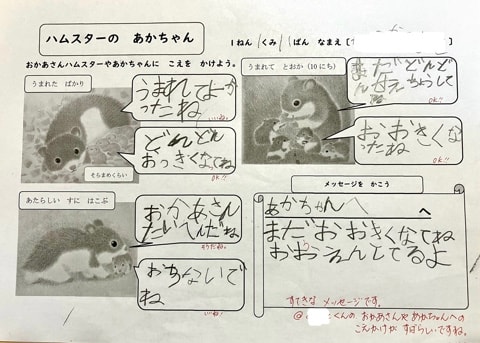 ハムスターの あかちゃん
1ねん 1くみ 1ばん なまえ [
おかあさんハムスターやあかちゃんに こえを かけよう。
うまれた ばかり
うまれてよーか
ったね
いいね。
どんどん
おっきくなてね
OK!!
そらまめくらい
うまれて とおか (10にち)
どんど
OK!!
おおきくな
ったね
あたらしい すに はこぶ
おかあさん
たいへんだね
そうだね。
おちないで
ね
いいね!
メッセージを かこう
あかちゃんへ へ
まだおおきくなてね
おおうえんしてるよ
すてきな メッセージです。
@ くんの おかあさんや あかちゃんへの
こえかけが すばらしいですね。